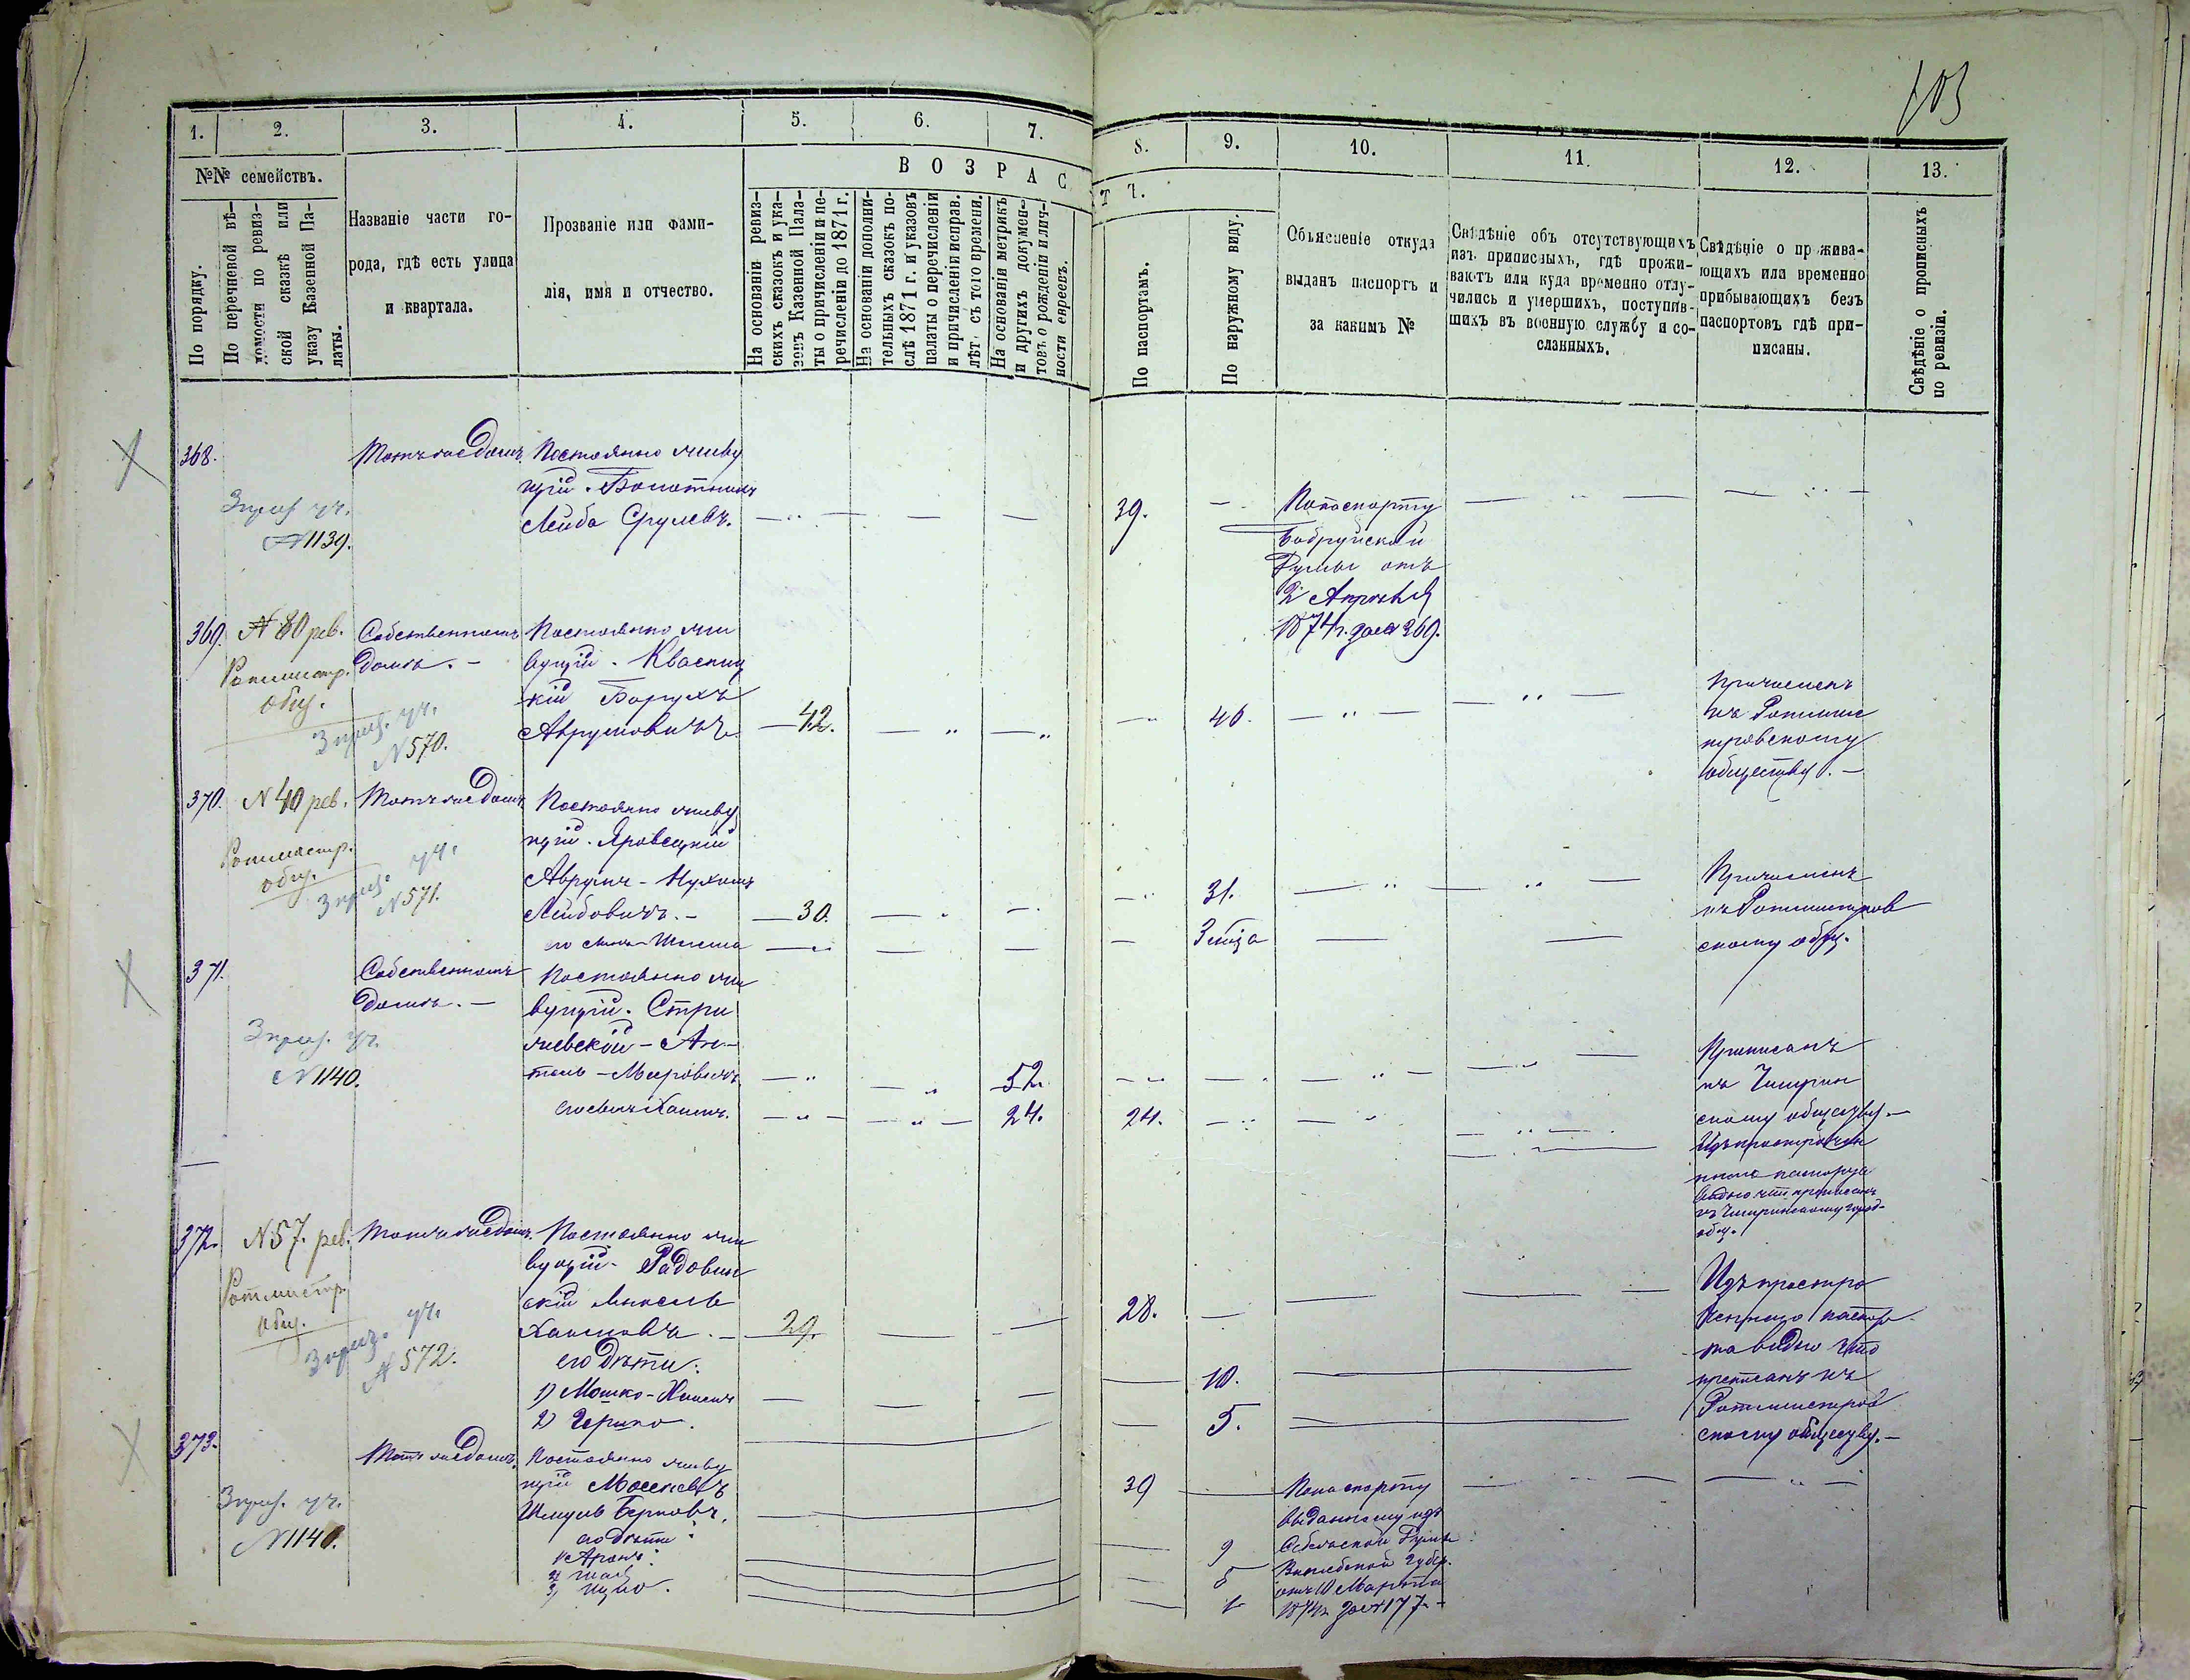 103
1. 2. 3. 4. 5. 6. 7. 8. 9. 10. 11. 12. 13.
№№ семействъ.
ВОЗРАСТЪ.
По порядку.
По перечневой вѣ-
домости по ревиз-
ской сказкѣ или
указу Казенной Па-
латы.
Названіе части го-
рода, гдѣ есть улица
и квартала.
Прозваніе или фами-
лія, имя и отчество.
На основаніи ревиз-
скихъ сказокъ и ука-
зовъ Казенной Пала-
ты о причисленіи и пе-
речисленіи до 1871 г.
На основаніи дополни-
тельныхъ сказокъ по-
слѣ 1871 г. и указовъ
палаты о перечисленіи
и причисленіи исправ.
лѣт. съ того времени.
На основаніи метрикъ
и другихъ докумен-
товъ о рожденіи и лич-
ности евреевъ.
По паспортамъ.
По наружному виду.
Объясненіе откуда
выданъ паспортъ и
за какимъ №
Свѣдѣніе объ отсутствующихъ
изъ приписныхъ, гдѣ прожи-
ваютъ или куда временно отлу-
чились и умершихъ, поступив-
шихъ въ военную службу и со-
сланныхъ.
Свѣдѣніе о прожива-
ющихъ или временно
прибывающихъ безъ
паспортовъ гдѣ при-
писаны.
Свѣдѣніе о прописныхъ
по ревизіи.
368.
3 приз. уч.
№ 1139.
Томъ же домѣ
Постоянно живу
щій. Болотникъ
Лейба Срулевъ.
39.
По паспорту
Бобруйской
Думы отъ
2 Апрѣля
1874 г. за № 369.
369. № 80 рев.
Ротмистр.
общ.
3 приз. уч.
№ 570.
Собственномъ
домѣ. —
Постоянно жи
вущій. Квасниц
кій Борухъ
Аврумовичъ. 42.
40.
Причисленъ
къ Ротмис
тровскому
обществу. —
370. № 40 рев.
Ротмистр.
общ.
3 приз. уч.
№ 571.
Томъ же домѣ
Постоянно живу
щій. Яровецкій
Аврумъ - Нухимъ
Лейбовичъ. — 30.
31.
его сынъ
3 мѣс.
Причисленъ
къ Ротмистров
скому общ.
371.
3 приз. уч.
№ 1140.
Собственномъ
домѣ. —
Постоянно жи
вущій. Стри
жевскій — Ан-
шель - Мееровичъ. 52.
его сынъ Хаимъ. 24. 24.
Приписанъ
къ Чигрин
скому обществу. —
Изъ просрочен
наго паспорта
видно что приписанъ
къ Чигринскому город.
общ.
372. № 57. рев.
Ротмистр.
общ.
3 приз. уч.
№ 572.
Томъ же домѣ.
Постоянно жи
вущій. Радовин
скій
Хаимовъ. — 29.
28.
его дѣти:
1) Мошко - Хаимъ 10.
2) Гершко. 5.
Изъ просро
ченнаго паспор
та видно что
приписанъ къ
Ротмистров
скому обществу. —
373.
3 приз. уч.
№ 1140.
Томъ же домѣ.
Постоянно живу
щій
Шмуль Берковъ.
39
его дѣти:
1) Аронъ: 9
По паспорту
выданному изъ
Себежской Думы
Витебской Губер.
отъ 10 Марта
1874 г. за № 177. —